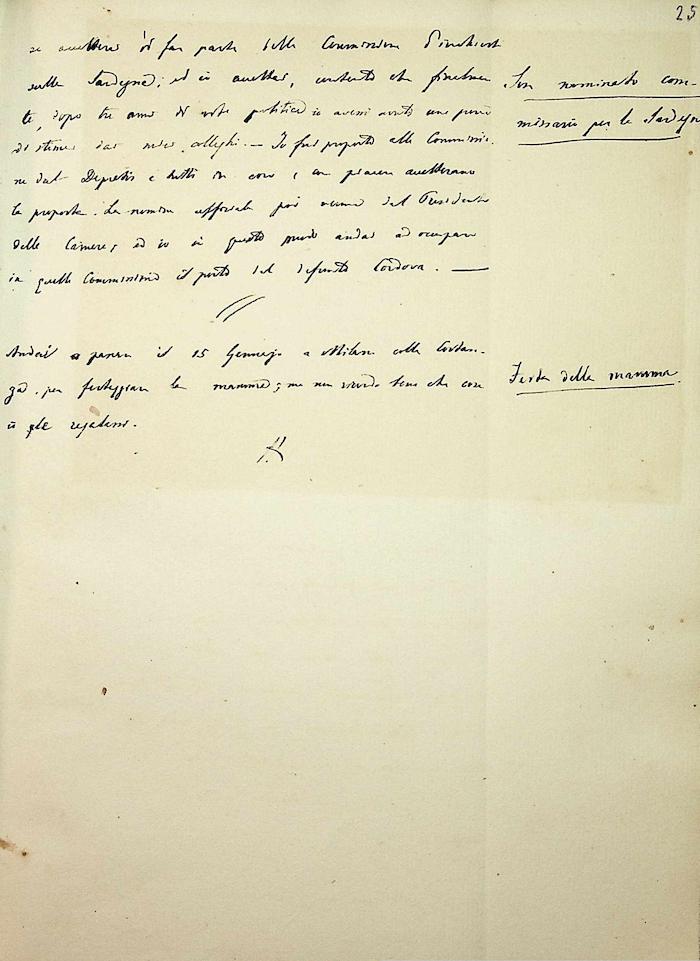 25
se accettava di far parte della Commissione d'inchiesta
sulla Sardegna; ed io accettai, contento che finalmen
te, dopo tre anni di vita politica io avessi avuto una prova
di stima dai miei colleghi. — Io fui proposto alla Commissio
ne dal Depretis e tutti in coro e con piacere accettarono
la proposta. La nomina ufficiale poi venne dal Presidente
della Camera; ed io in questo modo andai ad occupare
in quella Commissione il posto del defunto Cordova. —
Son nominato com-
missario per la Sardegna
Andai a passare il 15 Gennajo a Milano colla Costan-
za per festeggiare la mamma; ma non ricordo bene che cosa
le regalassi.
Festa della mamma.